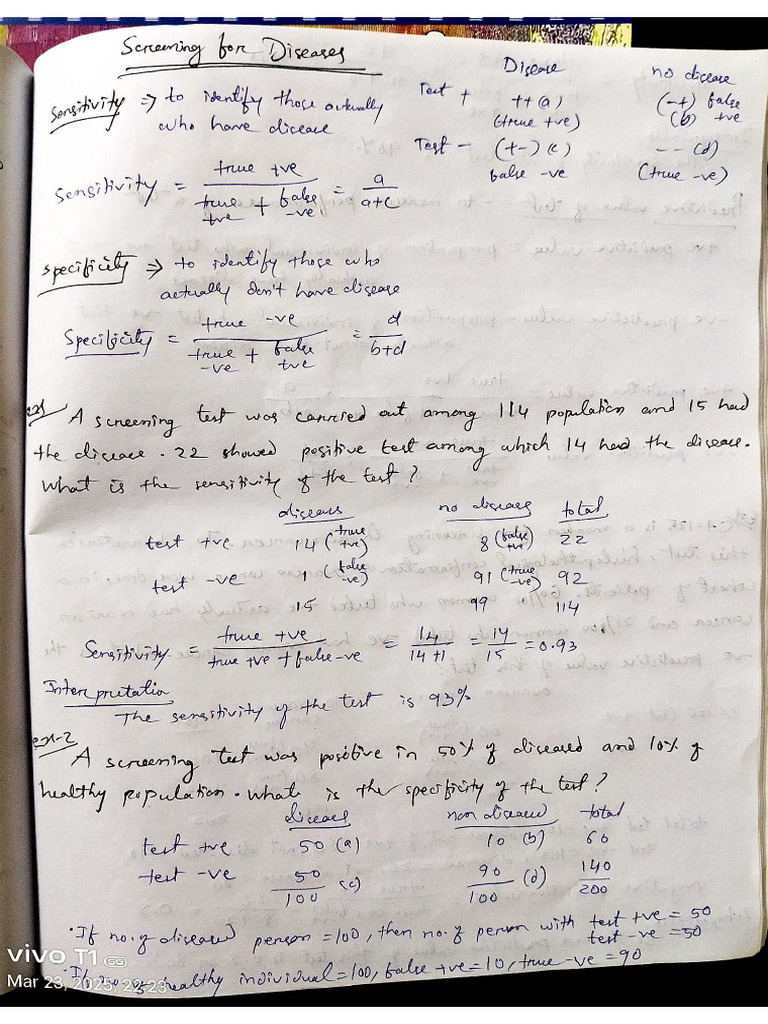 Screening for Diseases
Disease no disease
Sensitivity ⇒ to identify those actually
who have disease
Test + ++ (a) (-+) false
(true +ve) (b) +ve
Test - (+-) (c) -- (d)
false -ve (true -ve)
Sensitivity = true +ve / true +ve + false -ve = a / a+c
Specificity ⇒ to identify those who
actually don't have disease
Specificity = true -ve / true -ve + false +ve = d / b+d
ex1 A screening test was carried out among 114 population and 15 had
the disease. 22 showed positive test among which 14 had the disease.
What is the sensitivity of the test?
diseases no diseases total
test +ve 14 (true +ve) 8 (false +ve) 22
test -ve 1 (false -ve) 91 (true -ve) 92
15 99 114
Sensitivity = true +ve / true +ve + false -ve = 14 / 14+1 = 14 / 15 = 0.93
Interpretation
The sensitivity of the test is 93%
ex-2
A screening test was positive in 50% of diseased and 10% of
healthy population. What is the specificity of the test?
diseased non diseased total
test +ve 50 (a) 10 (b) 60
test -ve 50 (c) 90 (d) 140
100 100 200
• If no. of diseased person = 100, then no. of person with test +ve = 50
test -ve = 50
• If no. of healthy individual = 100, false +ve = 10, true -ve = 90
vivo T1 5G
Mar 23, 2025, 22:23